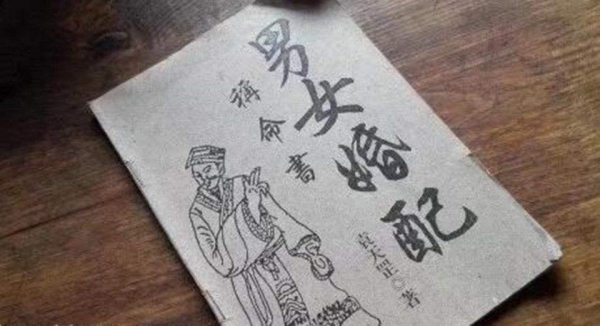 男女婚配
稱命書
袁天罡○著